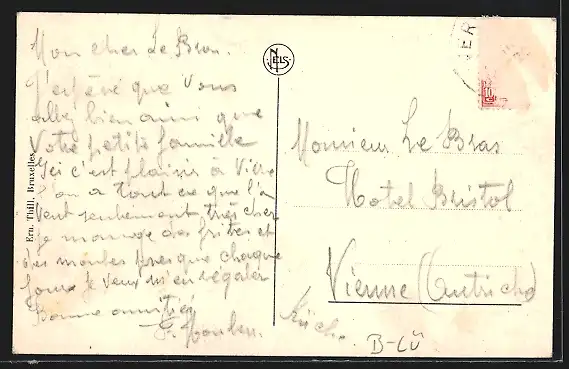 Mon cher Le Bras.
J'espère que vous
allez bien ainsi que
Votre petite famille
Ici c'est plaisir à
on a tout ce que l'on
Veut seulement très cher
je mange des frites et
des moules presque chaque
jour je veux m'en régaler
Bonne amitiés
Ern. Thill, Bruxelles
NELS
Monsieur Le Bras
Hotel Bristol
Vienne (Autriche)
Küche
B-LÜ